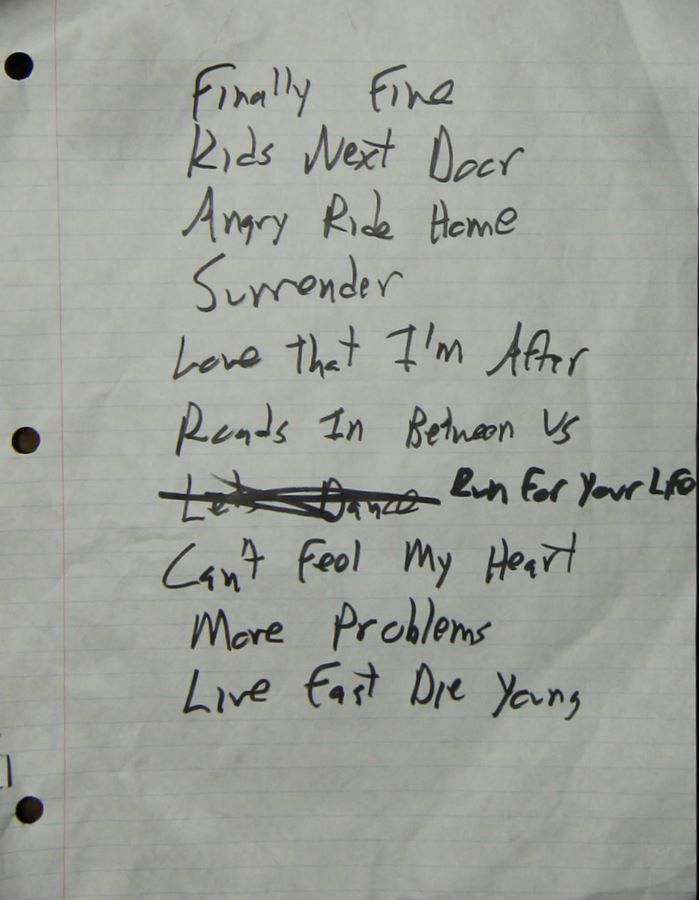 Finally Fine
Kids Next Door
Angry Ride Home
Surrender
Love that I'm After
Roads In Between Us
Let's Dance Run For Your Life
Can't Feel My Heart
More Problems
Live Fast Die Young